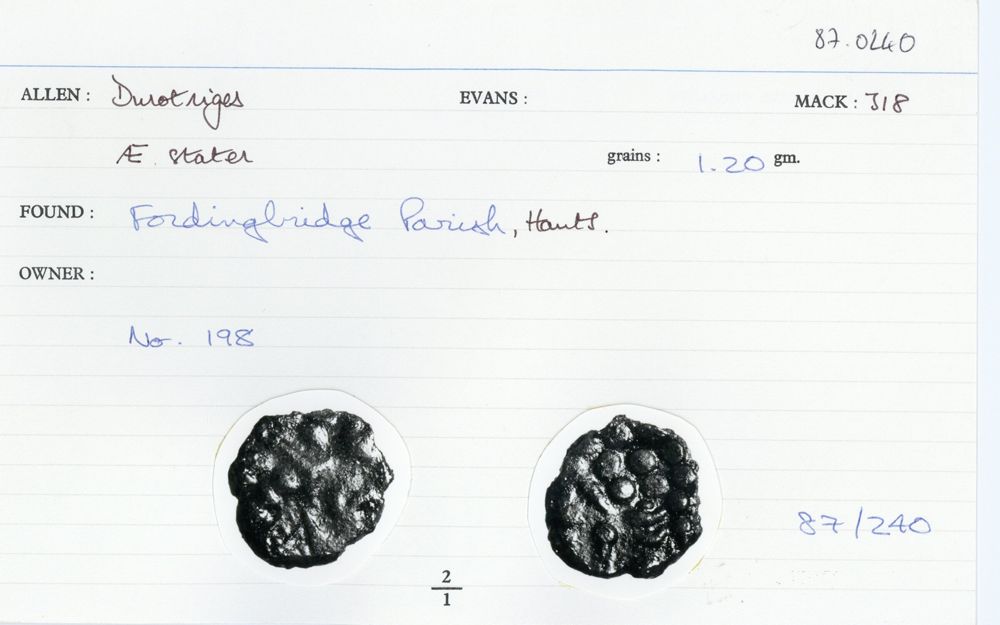 87.0240
ALLEN : Durotriges EVANS : MACK : 318
Æ. stater grains : 1.20 gm.
FOUND : Fordingbridge Parish, Hants.
OWNER :
No. 198
87/240
2
1